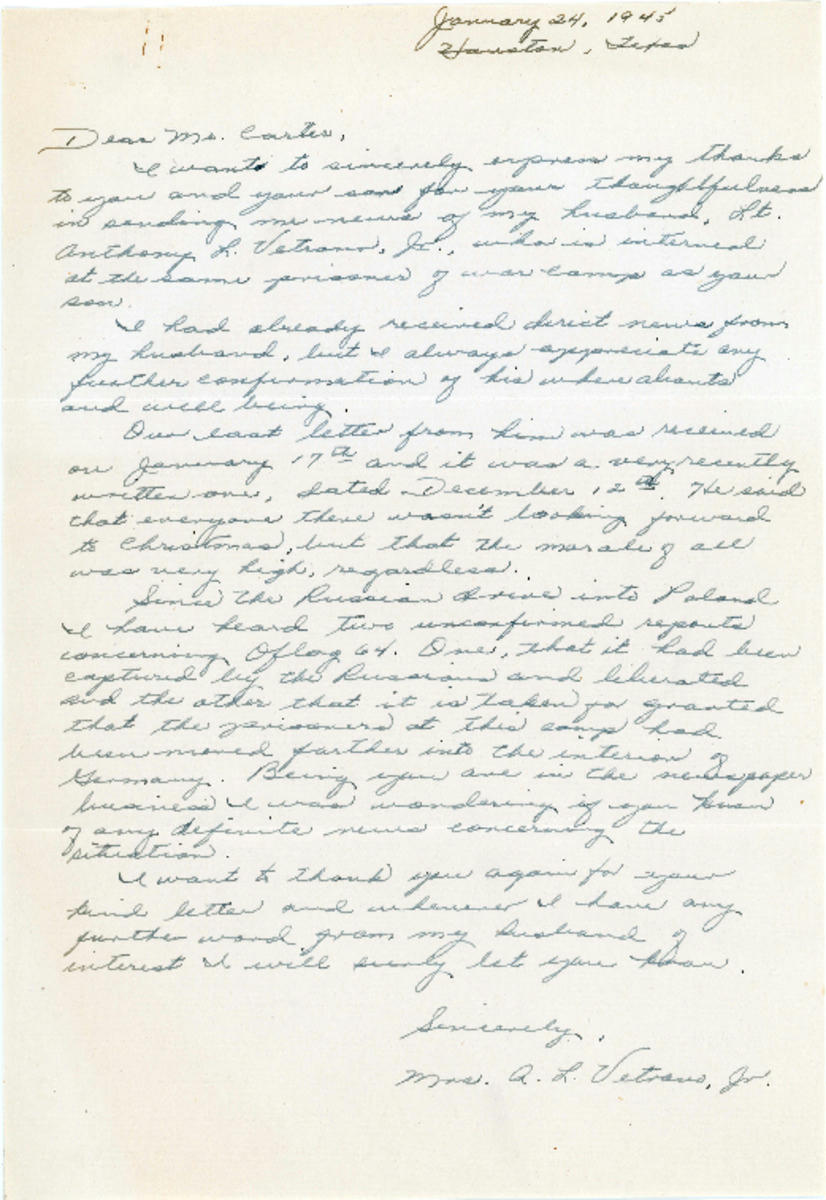 January 24, 1945
Houston, Texas
Dear Mr. Carter,
I want to sincerely express my thanks
to you and your son for your thoughtfulness
in sending me news of my husband, Lt.
Anthony L. Vetrano, Jr., who is interned
at the same prisoner of war camp as your
son.
I had already received direct news from
my husband, but I always appreciate any
further confirmation of his whereabouts
and well being.
Our last letter from him was received
on January 17th and it was a very recently
written one, dated December 12th. He said
that everyone there wasn't looking forward
to Christmas, but that the morale of all
was very high, regardless.
Since the Russian drive into Poland
I have heard two unconfirmed reports
concerning Oflag 64. One, that it had been
captured by the Russians and liberated
and the other that it is taken for granted
that the prisoners at this camp had
been moved further into the interior of
Germany. Being you are in the newspaper
business I was wondering if you knew
of any definite news concerning the
situation.
I want to thank you again for your
kind letter and whenever I have any
further word from my husband of
interest I will surely let you know.
Sincerely,
Mrs. A. L. Vetrano, Jr.